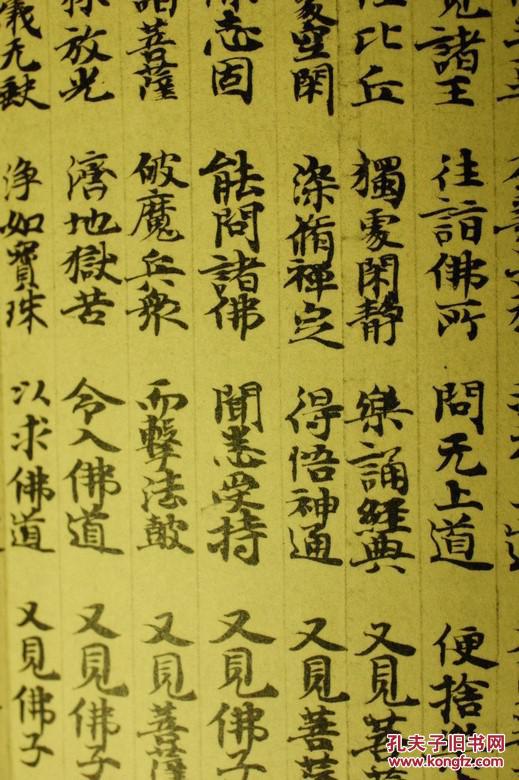 見諸王 往詣佛所 問无上道 便捨
比丘 獨處閑靜 樂誦經典 又見菩
處空閑 深脩禪定 得悟神通 又見菩薩
志固 能問諸佛 聞悉受持 又見佛子
諸菩薩 破魔兵衆 而擊法鼓 又見菩薩
放光 濟地獄苦 令入佛道 又見佛子
儀无缺 淨如寶珠 以求佛道 又見佛子
孔夫子旧书网
www.kongfz.com